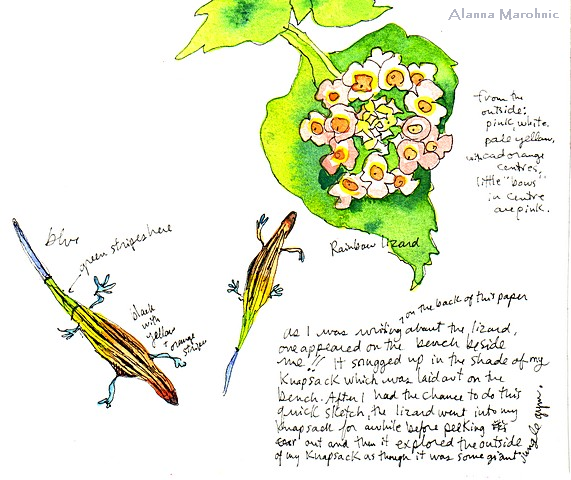 Alanna Marohnic
from the
outside:
pink, white.
pale yellow,
with cad orange
centres,
little "bows"
in centre
are pink.
blue
green stripes here
black
with
yellow
orange
stripes
Rainbow lizard
on the back of this paper
as I was writing about the lizard,
one appeared on the bench beside
me!! It snugged up in the shade of my
Knapsack which was laid out on the
bench. After I had the chance to do this
quick sketch, the lizard went into my
knapsack for awhile before peeking
out and then it explored the outside
of my Knapsack as though it was some giant
jungle gym.